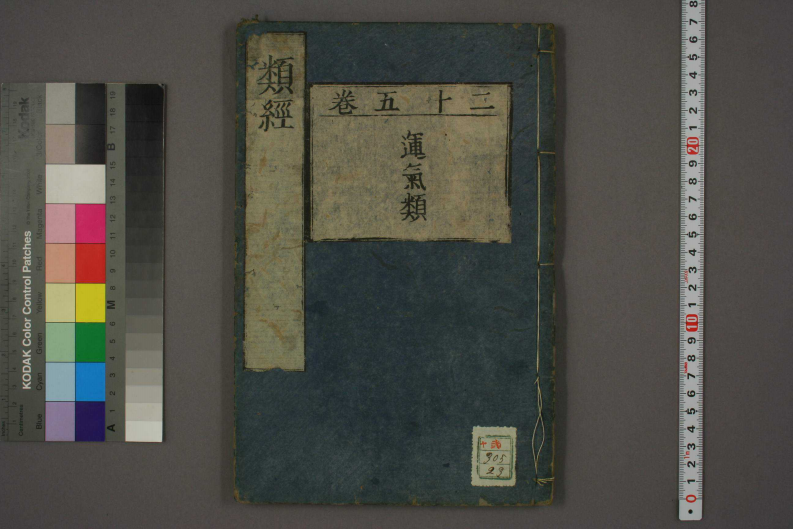 類經
二十五卷
運氣類
905
29
KODAK Color Control Patches
Kodak
Blue
Cyan
Green
Yellow
Red
Magenta
White
A
1
2
3
4
5
6
M
8
9
10
11
12
13
14
15
B
17
18
19
0
1
2
3
4
5
6
7
8
9
10
1
2
3
4
5
6
7
8
9
20
1
2
3
4
5
6
7
8